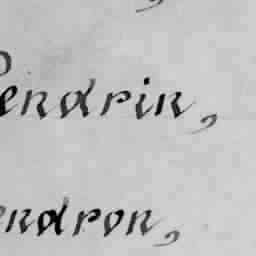 Pendrin,
endron,